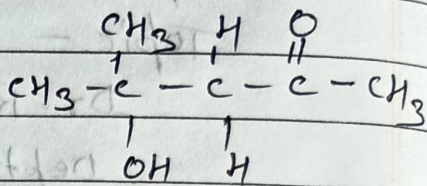 CH3 H O
CH3 - C - C - C - CH3
OH H